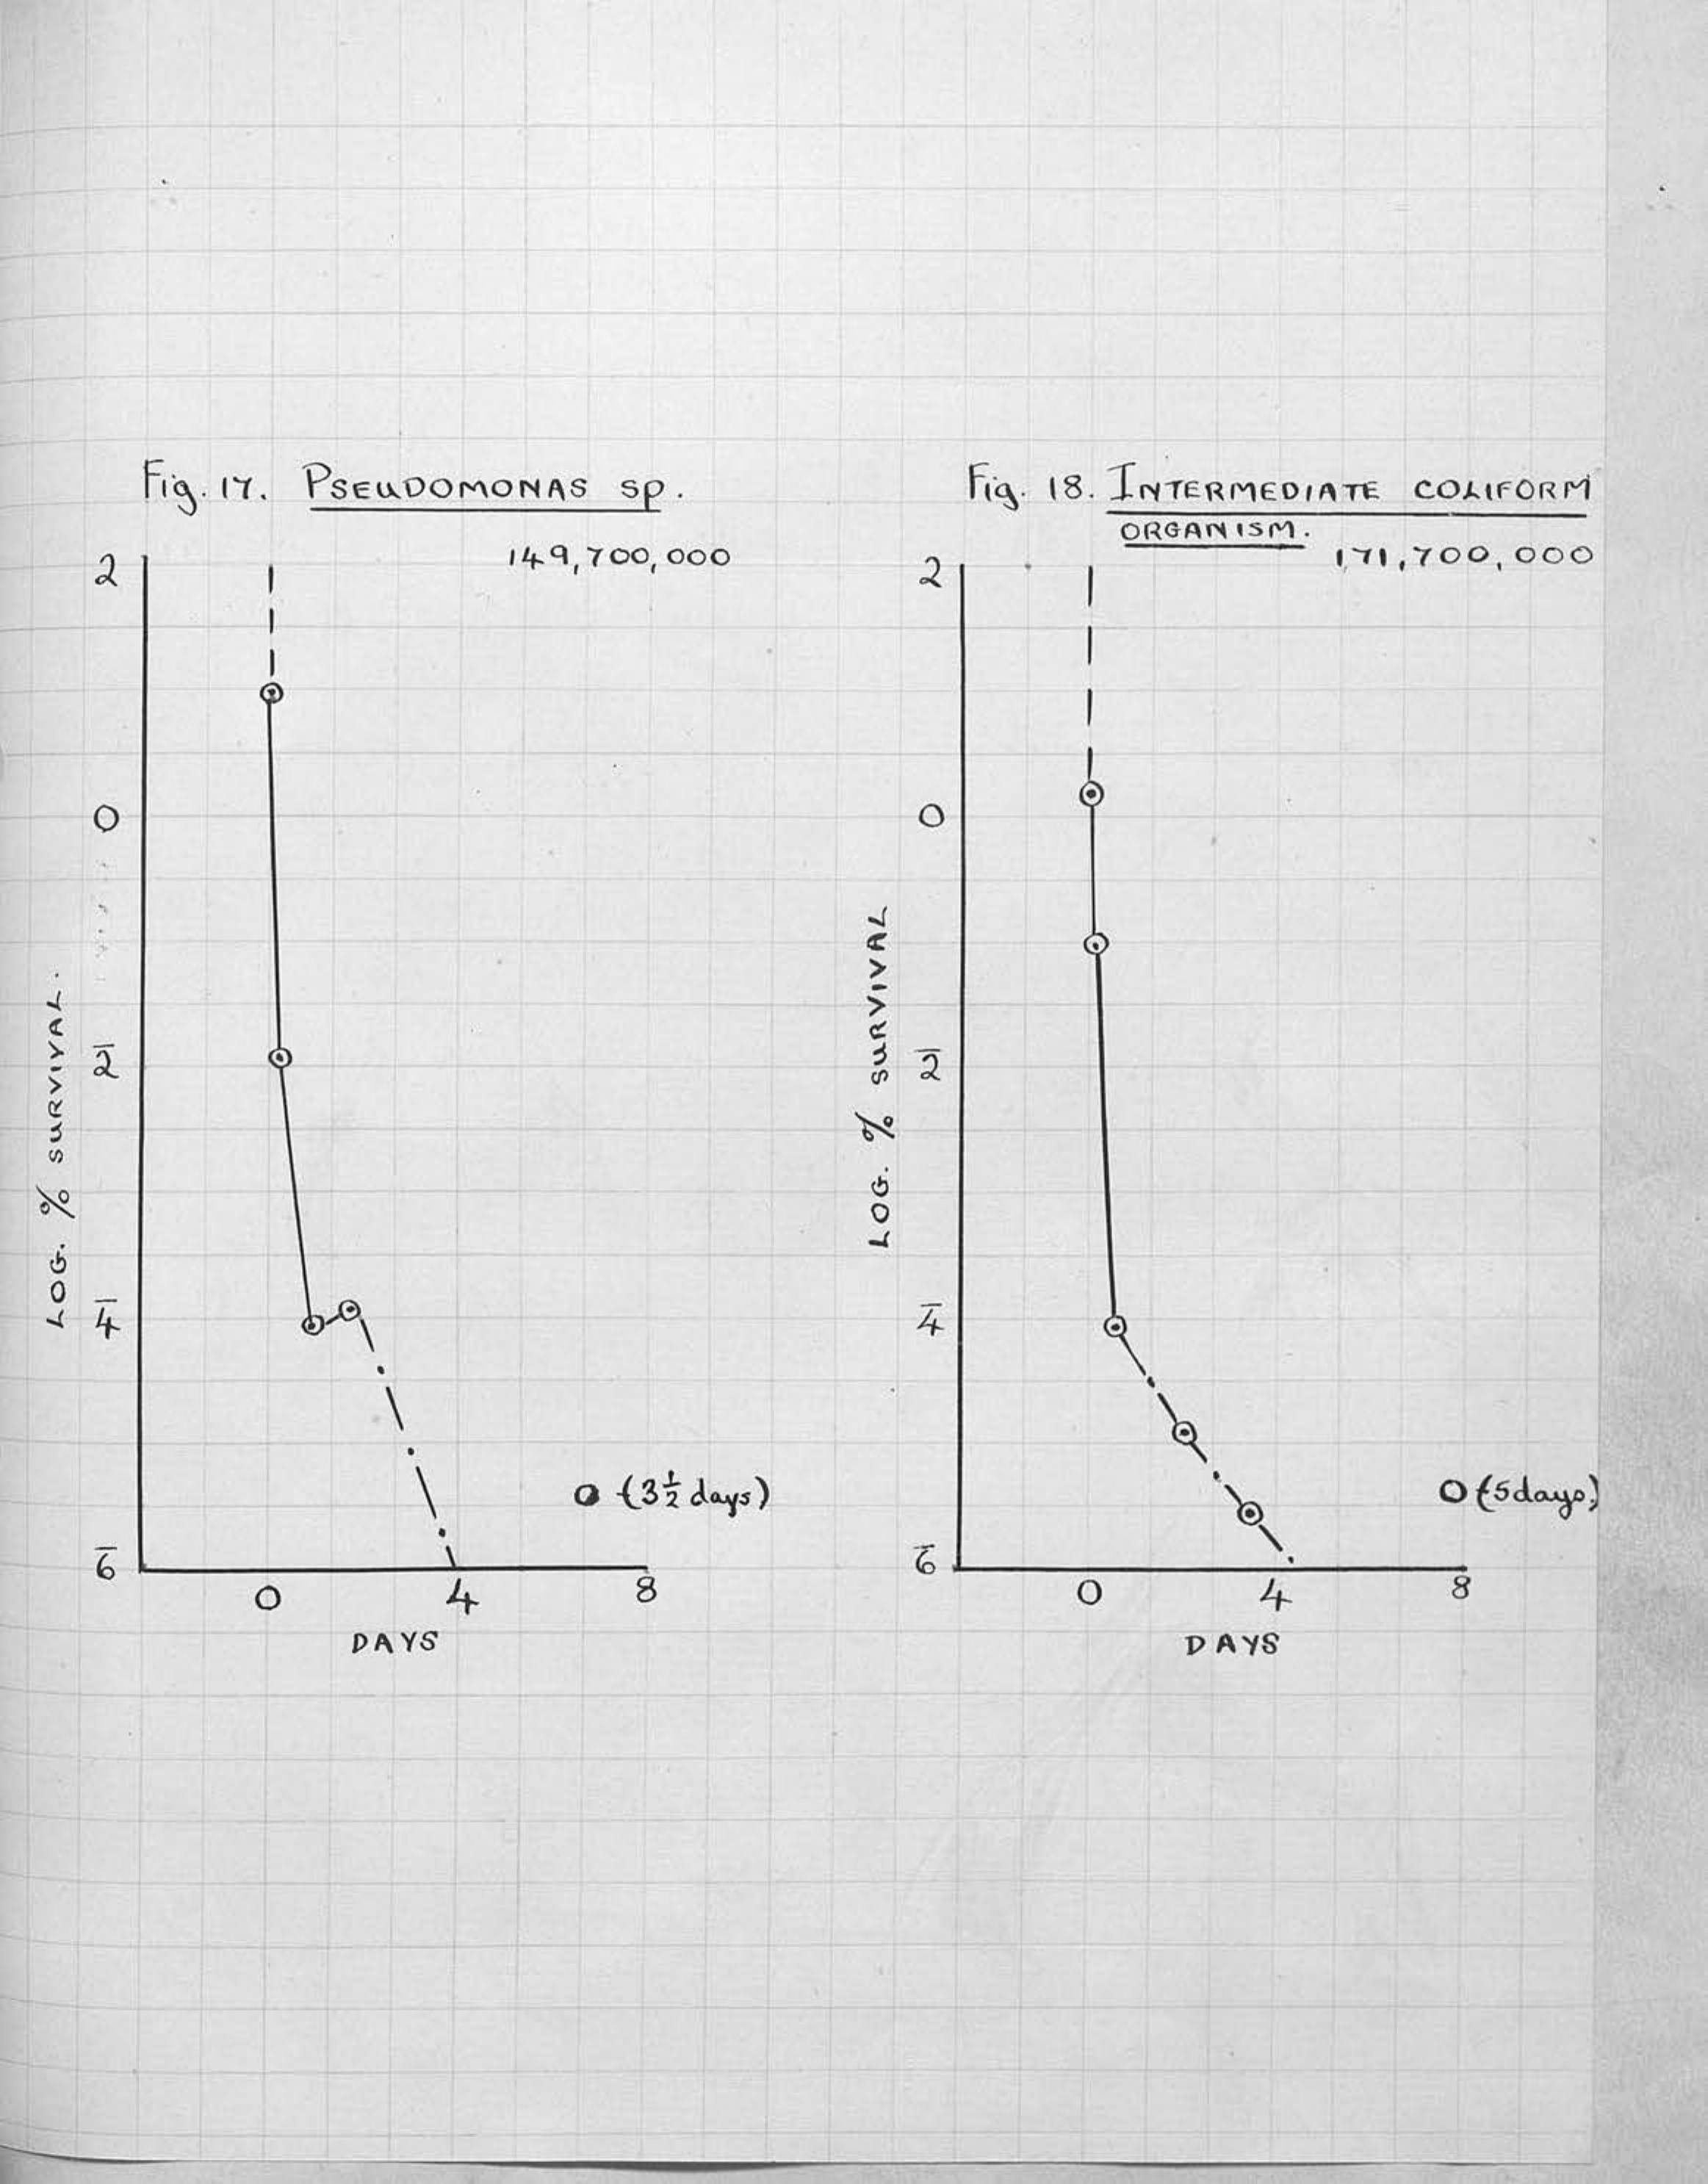 Fig. 17. PSEUDOMONAS sp.
149,700,000
2
0
2̄
4̄
6̄
LOG. % SURVIVAL.
0 4 8
DAYS
O (3½ days)
Fig. 18. INTERMEDIATE COLIFORM
ORGANISM.
171,700,000
2
0
2̄
4̄
6̄
LOG. % SURVIVAL
0 4 8
DAYS
O (5 days)